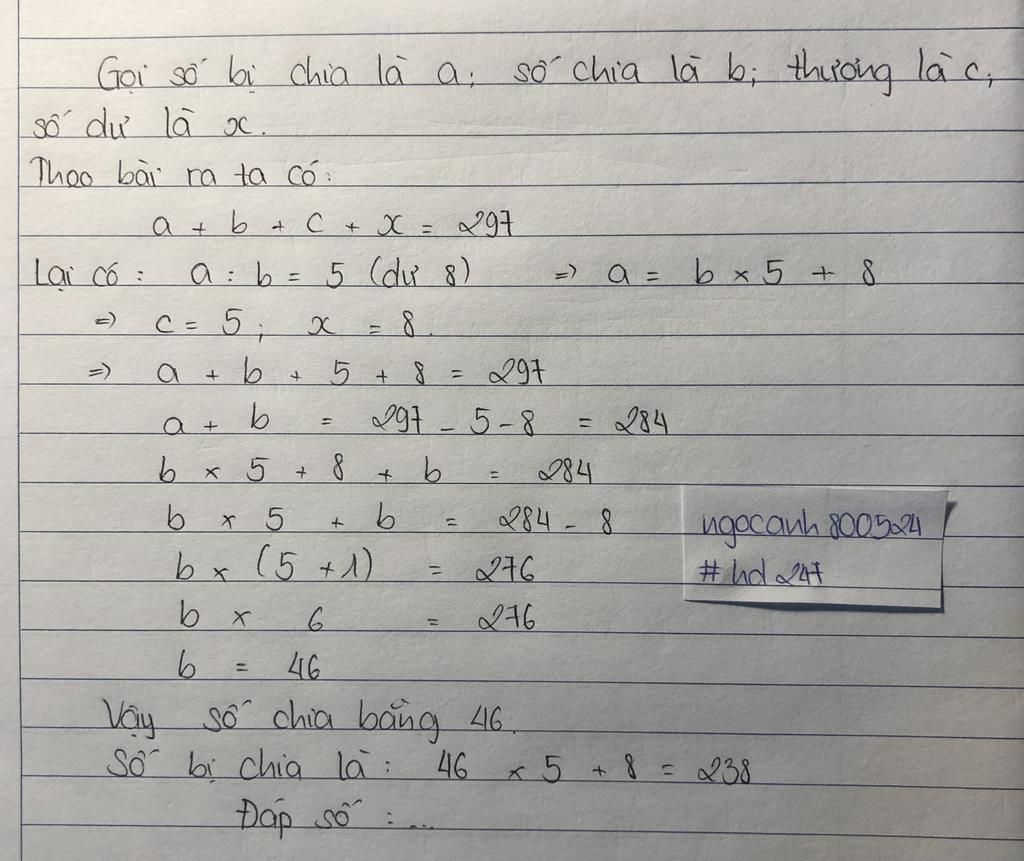 Gọi số bị chia là a; số chia là b; thương là c;
số dư là x.
Theo bài ra ta có:
a + b + c + x = 297
Lại có: a : b = 5 (dư 8) => a = b x 5 + 8
=> c = 5; x = 8.
=> a + b + 5 + 8 = 297
a + b = 297 - 5 - 8 = 284
b x 5 + 8 + b = 284
b x 5 + b = 284 - 8
b x (5 + 1) = 276
b x 6 = 276
b = 46
Vậy số chia bằng 46.
Số bị chia là: 46 x 5 + 8 = 238
Đáp số : ...
ngocanh 800524
# hd 247